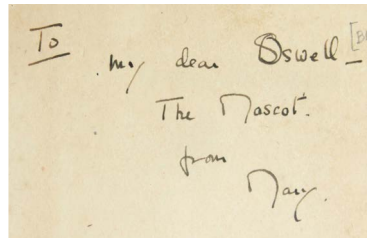 To
my dear Oswell [B
The Mascot.
from
Mary.